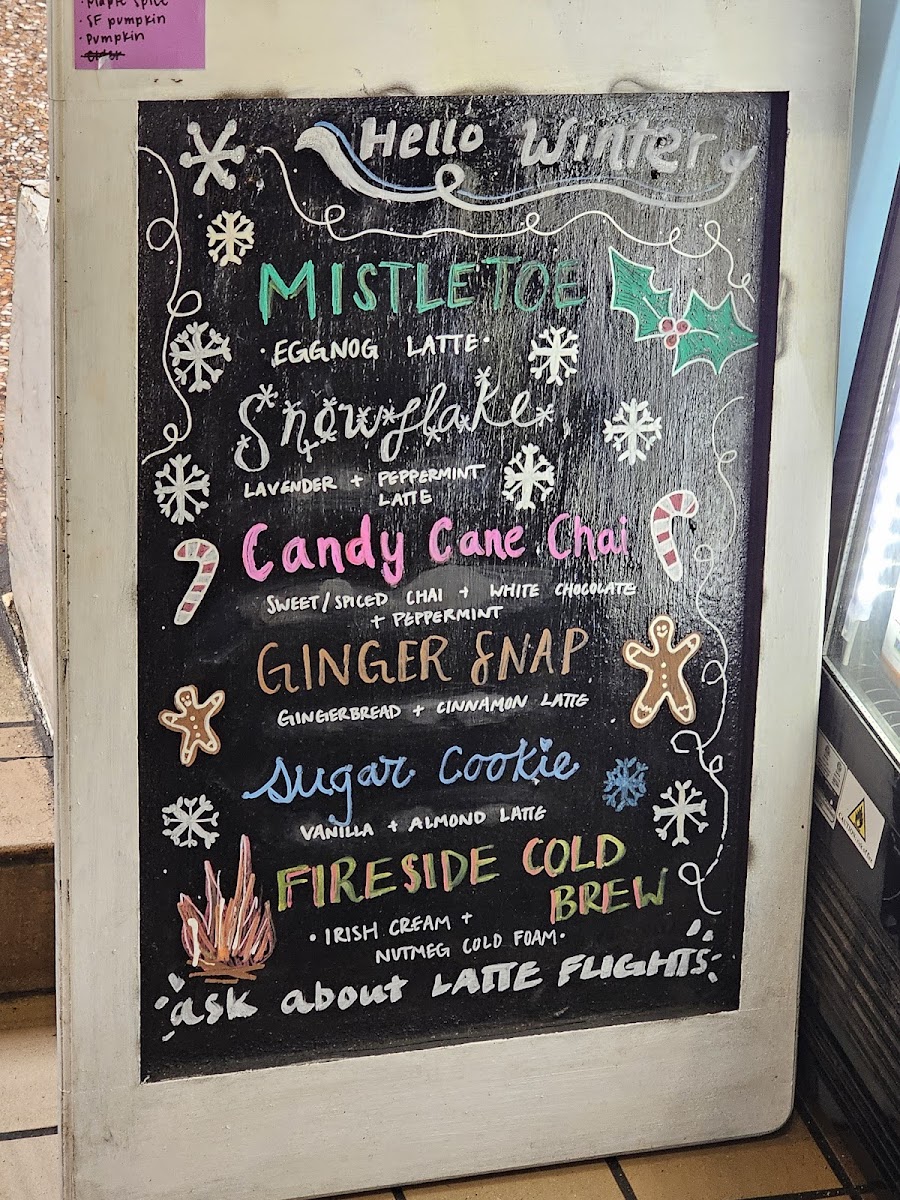 · Maple Spice
· SF pumpkin
· Pumpkin
Hello Winter
MISTLETOE
·EGGNOG LATTE·
Snowflake
LAVENDER + PEPPERMINT
LATTE
Candy Cane Chai
SWEET/SPICED CHAI + WHITE CHOCOLATE
+ PEPPERMINT
GINGER SNAP
GINGERBREAD + CINNAMON LATTE
Sugar Cookie
VANILLA + ALMOND LATTE
FIRESIDE COLD
BREW
·IRISH CREAM +
NUTMEG COLD FOAM·
ask about LATTE FLIGHTS
CAUTION